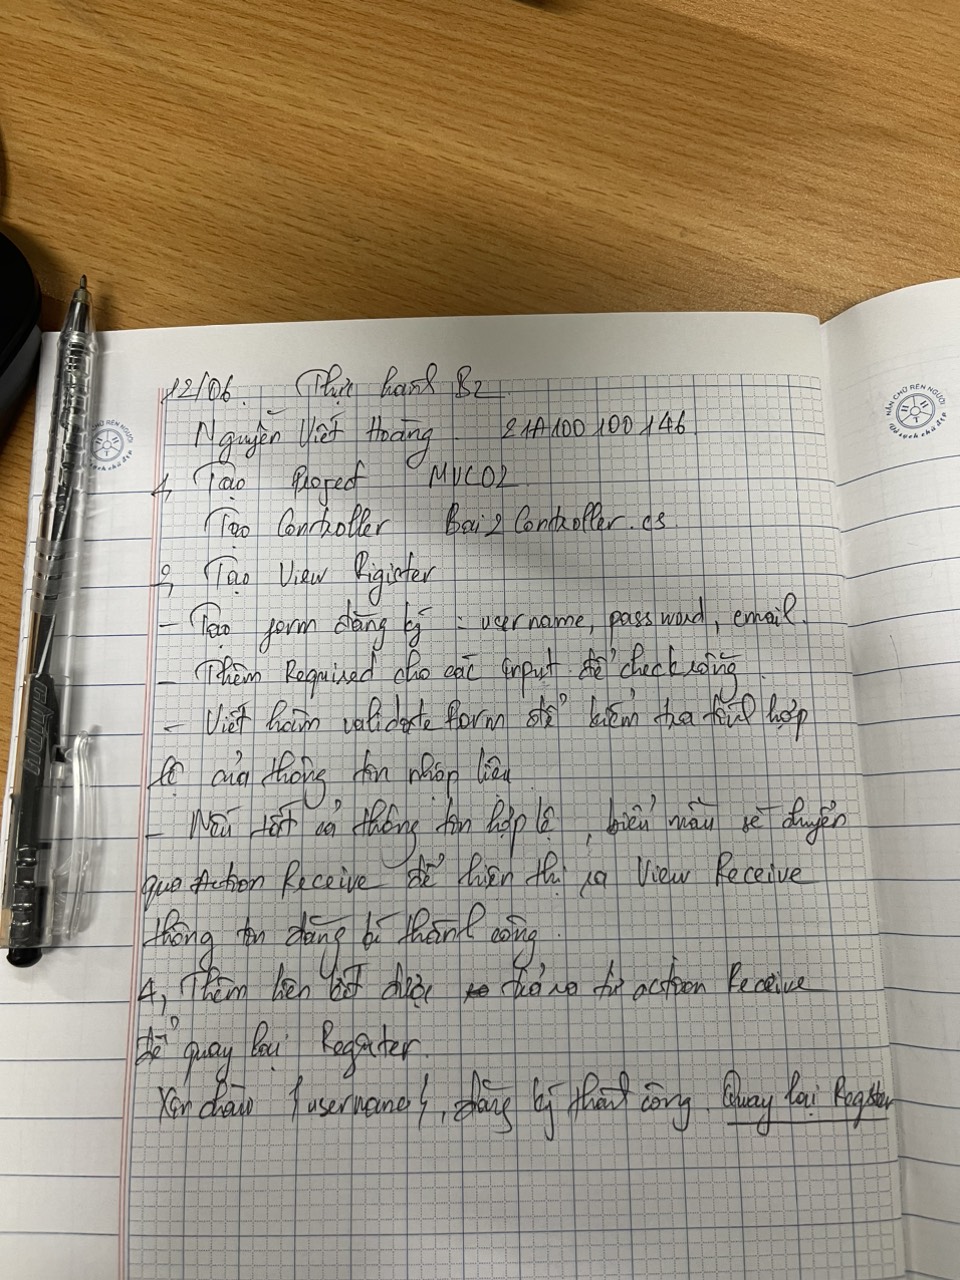 12/06. Thực hành B2
Nguyễn Viết Hoàng 21A100100146
1, Tạo Project MVC02
Tạo Controller Bai2Controller.cs
2, Tạo View Rigister
- Tạo form đăng ký : username, password, email.
- Thêm Required cho các input để check rỗng
- Viết hàm validate form để kiểm tra tính hợp
lệ của thông tin nhập liệu
- Nếu tất cả thông tin hợp lệ, biểu mẫu sẽ chuyển
qua Action Receive để hiện thị ra View Receive
thông tin đăng kí thành công.
4, Thêm liên kết được trả ra từ action Receive
để quay lại Register.
Xin chào {username}, đăng ký thành công. Quay lại Register
NẮN CHỮ RÈN NGƯỜI
Vở sạch chữ đẹp